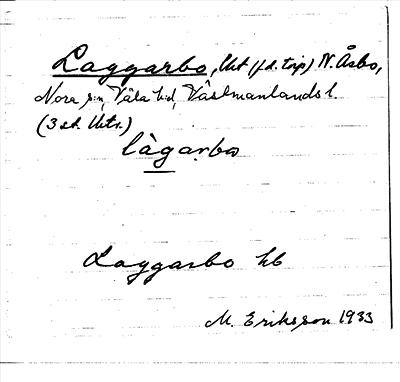 Laggarbo, Utt (f.d. torp) N. Åsbo,
Nora sn, Våla hd, Västmanlands l.
(3 st. Utt.)
làgarbo
Laggarbo hb
M. Eriksson 1933